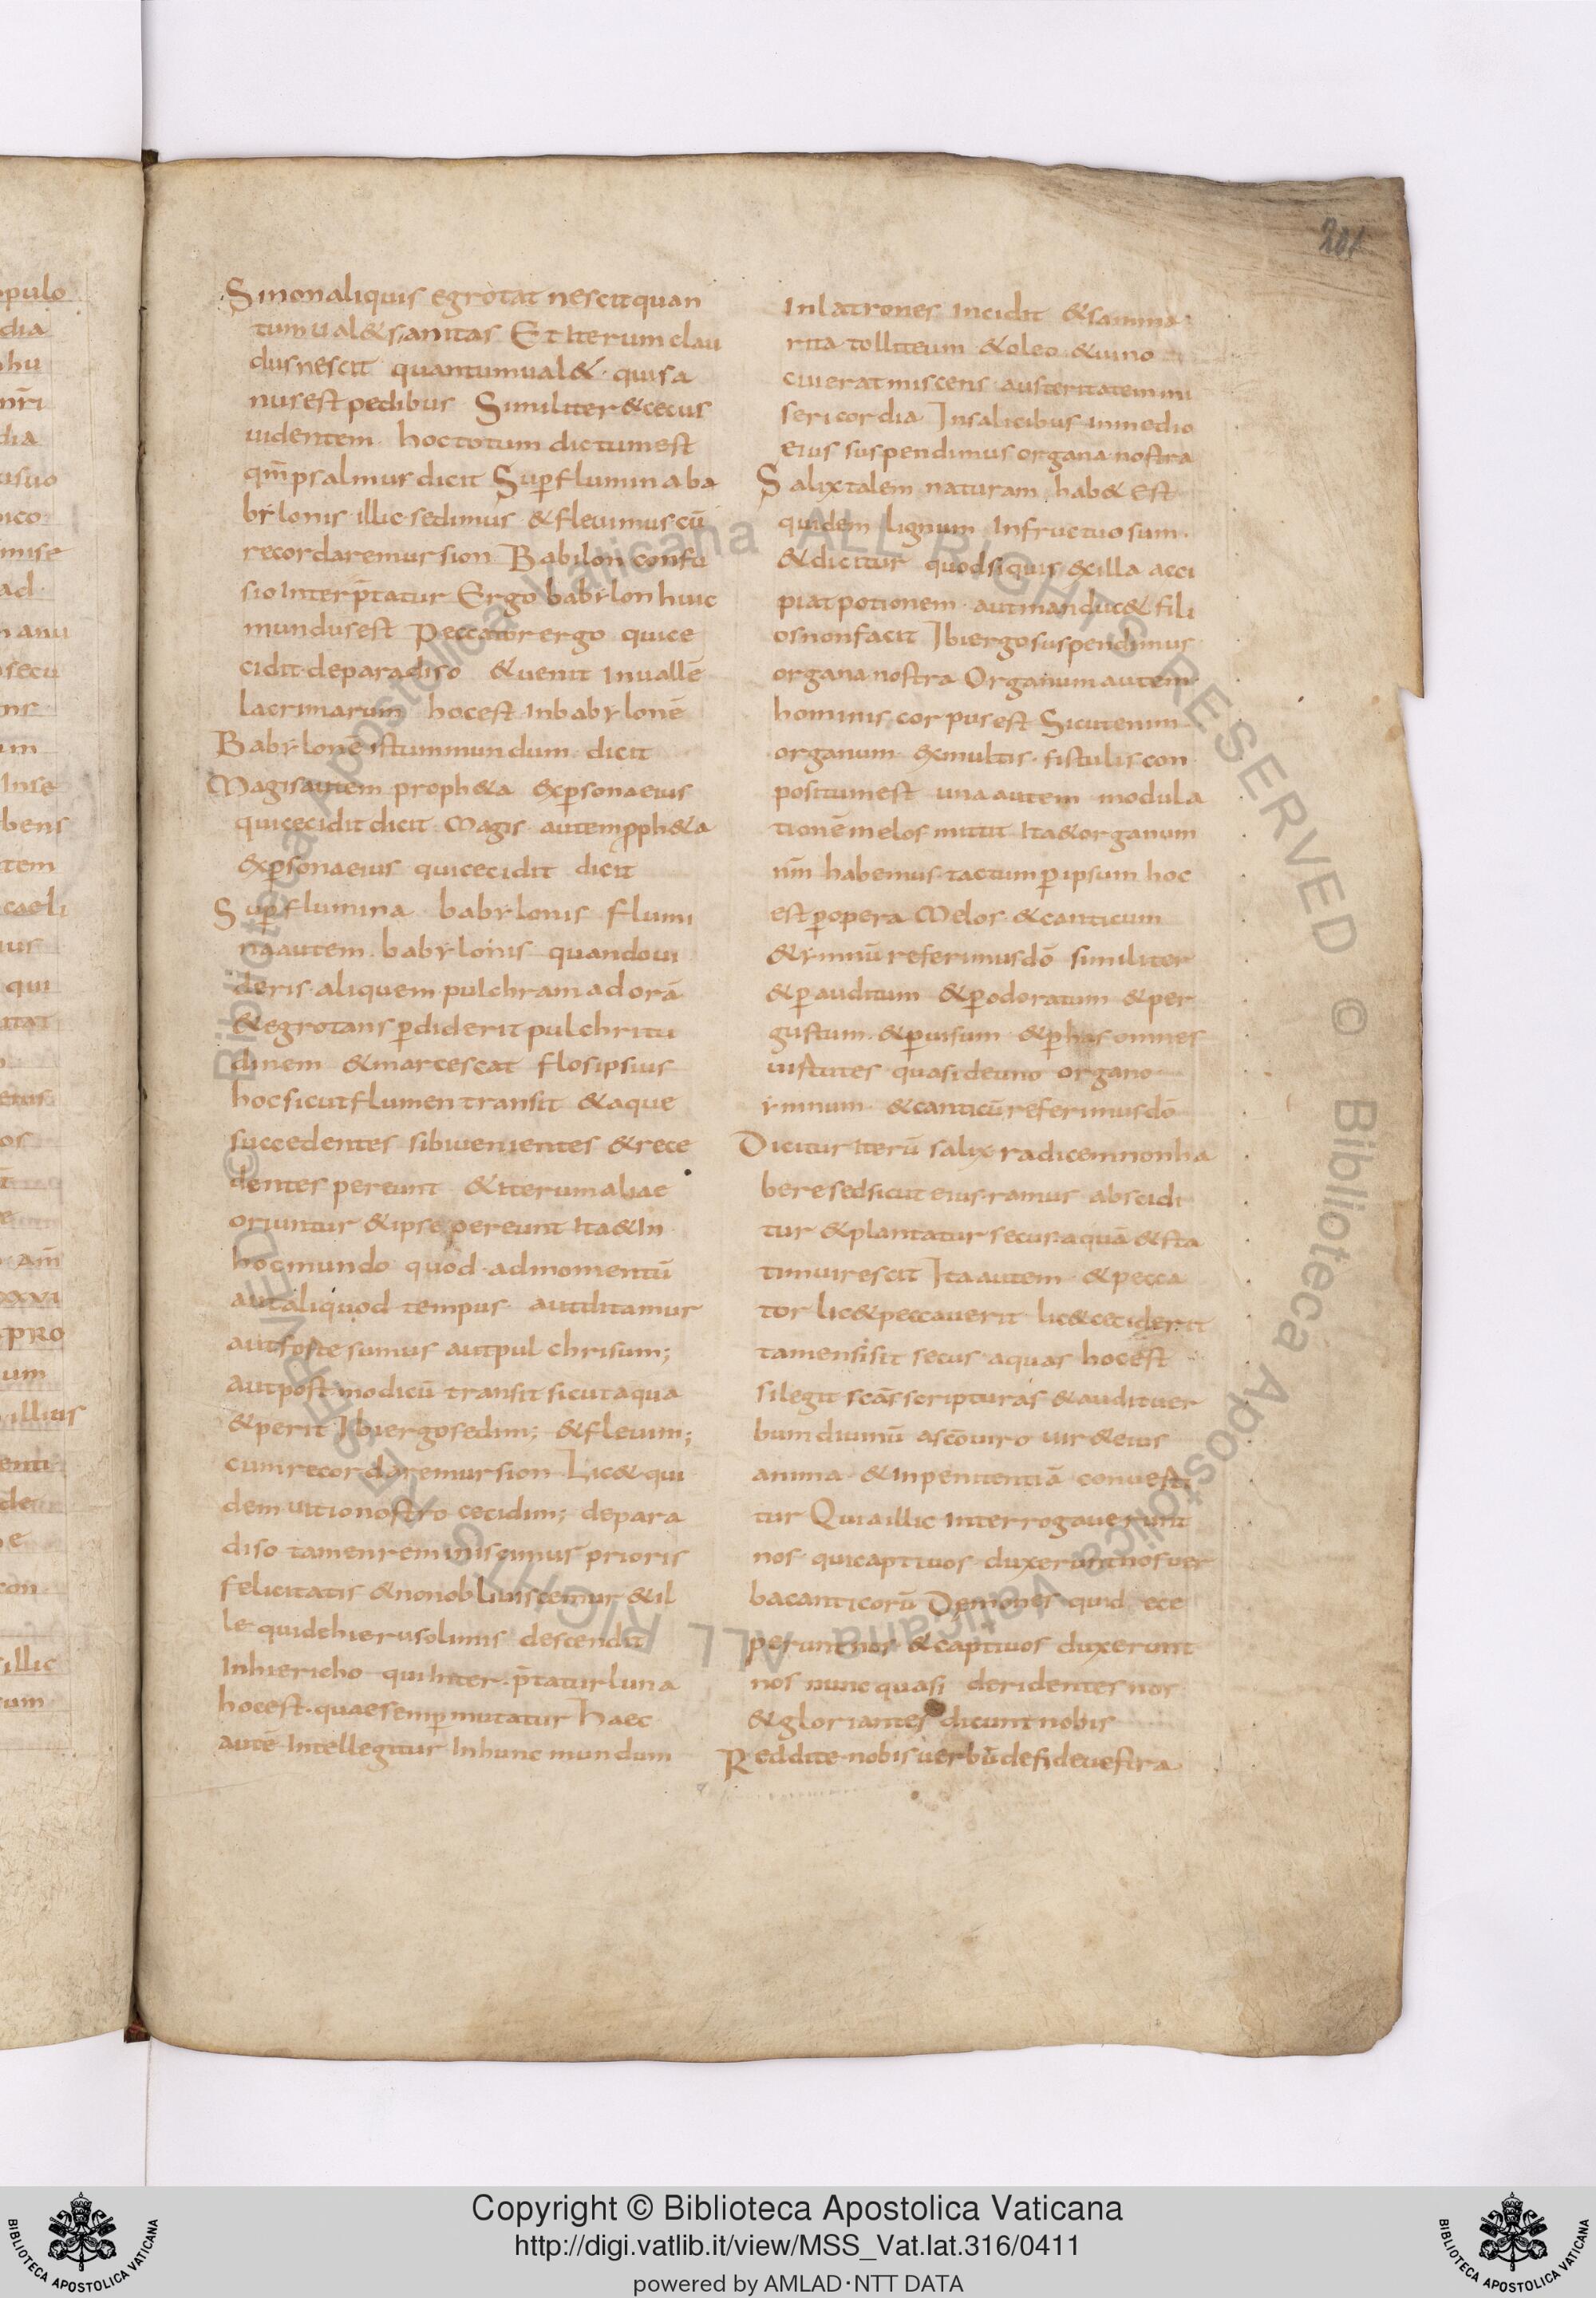 204
Si non aliquis egrotat nescit quan
tum ual& sanitas Et Iterum clau
dus nescit quantum ual& qui sa
nus est pedibus Similiter & cecus
uidentem hoc totum dictum est
qm̄ psalmus dicit Sup flumina ba
bylonis illic sedimus & fleuimus cū
recordaremur sion Babilon confu
sio Interp̄tatur Ergo babylon huic
mundus est Peccator ergo qui ce
cidit de paradiso & uenit In uallē
lacrimarum hoc est In babylonē
Babylonē istum mundum dicit
Magis autem proph&a ex psona eius
qui cecidit dicit Magis autem pph&a
ex psona eius qui cecidit dicit
Sup flumina babylonis flumi
na autem babylonis quando ui
deris aliquem pulchram ad orā
& egrotans pdiderit pulchritu
dinem & marcescat flos ipsius
hoc sicut flumen transit & aque
succedentes sibi uenientes & rece
dentes pereunt & Iterum aliae
oriuntur & ipse pereunt Ita & In
hoc mundo quod ad momentū
aut aliquod tempus aut ditamur
aut forte sumus aut pulchri sum;
aut post modicū transit sicut aqua
& perit Ibi ergo sedim; & fleuim;
cum recordaremur sion Lic& qui
dem uitio nostro cecidim; de para
diso tamen reminiscimus prioris
felicitatis & non obliuiscemur & il
le qui de hierusolimis descendit
In hiericho qui Inter p̄tatur luna
hoc est quae semp mutatur Haec
autē Intellegitur In hunc mundum
In latrones Incidit & samma
rita tollit eum & oleo & uino
ciuerat miscens austeritatem mi
sericordia In salicibus in medio
eius suspendimus organa nostra
Salix talem naturam hab& Est
quidem lignum Infructuosum
& dicitur quod si quis ex illa acci
piat potionem aut manduc& fili
os non facit Ibi ergo suspendimus
organa nostra Organum autem
hominis corpus est Sicut enim
organum ex multis fistulis con
positum est una autem modula
tionē melos mittit Ita & organum
nm̄ habemus tactum p ipsum hoc
est p opera Melos & canticum
& ymnū referimus dō similiter
& p auditum & p odoratum & per
gustum & p uisum & p has omnes
uistutes quasi de uno organo
ymnum & canticū referimus dō
Dicitur Iterū salix radicem non ha
bere sed sicut eius ramus abscidi
tur & plantatur secus aquā & sta
tim uirescit Ita autem & pecca
tor lic& peccauerit lic& ceciderit
tamen si sit secus aquas hoc est
si legit scās scripturas & audit uer
bum diuinū a scō uiro uir & eius
anima & In penitentiā conuesti
tur Quia illic Interrogauerunt
nos qui captiuos duxerunt nos uer
ba canticorū Demones quid ece
perunt nos & captiuos duxerunt
nos nunc quasi deridentes nos
& gloriantes dicunt nobis
Reddite nobis uerbū de fide uestra
Copyright © Biblioteca Apostolica Vaticana
http://digi.vatlib.it/view/MSS_Vat.lat.316/0411
powered by AMLAD·NTT DATA